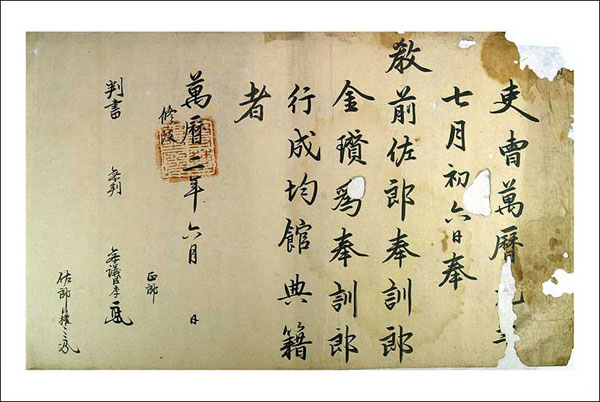 吏曹萬曆
七月初六日奉
教前佐郎奉訓郎
金瓚爲奉訓郎
行成均館典籍
者
萬曆二年六月 日
判書 參判 參議臣李 正郎
佐郎臣